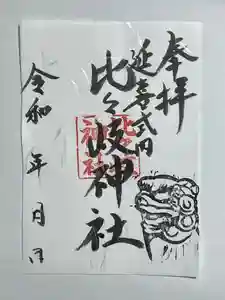 奉拝
延喜式内
比々岐神社
令和 年 月 日